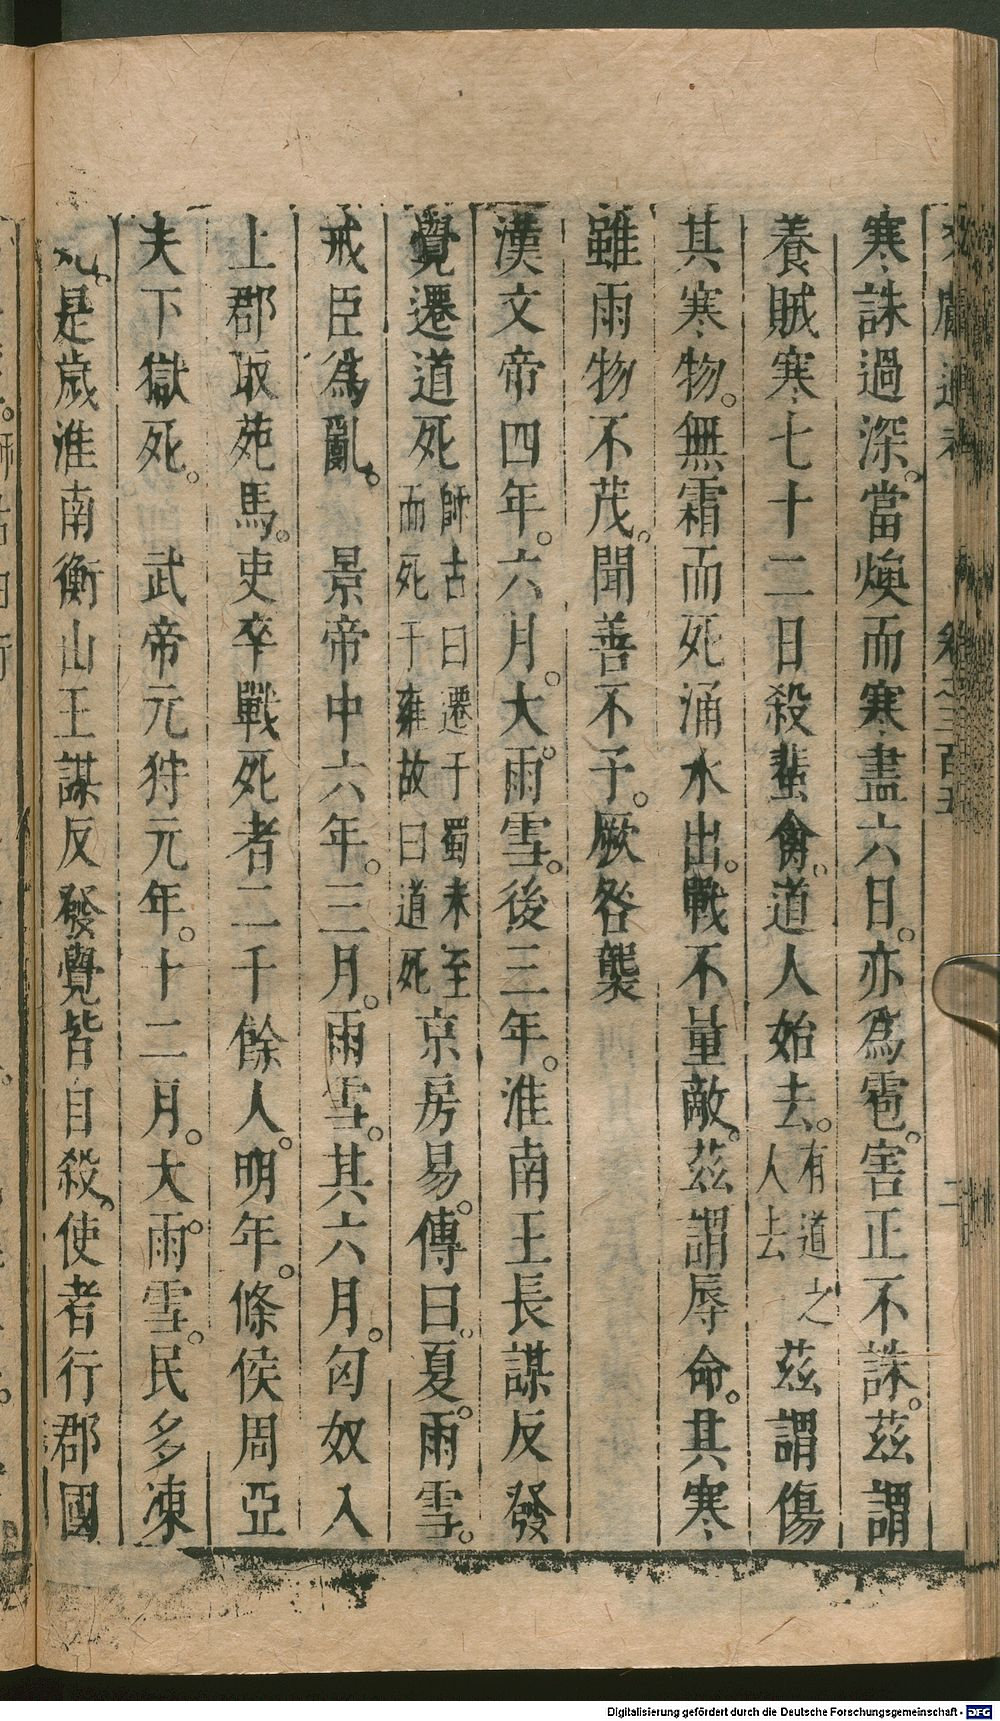 寒誅過深。當燠而寒盡六日。亦爲雹。害正不誅。茲謂
養賊寒七十二日殺蜚禽。道人始去。有道之人去茲謂傷
其寒物。無霜而死涌水出。戰不量敵。茲謂辱命。其寒
雖雨物不茂。聞善不予。厥咎聾
漢文帝四年。六月。大雨雪。後三年。淮南王長謀反發
覺遷道死師古曰遷于蜀未至而死于雍故曰道死京房易。傳曰。夏。雨雪。
戒臣爲亂。　景帝中六年。三月。雨雪。其六月。匈奴入
上郡取苑馬。吏卒戰死者二千餘人。明年。條侯周亞
夫下獄死。　武帝元狩元年。十二月。大雨雪。民多凍
死。是歲淮南衡山王謀反發覺皆自殺。使者行郡國
卷之三百五
二
Digitalisierung gefördert durch die Deutsche Forschungsgemeinschaft - DFG